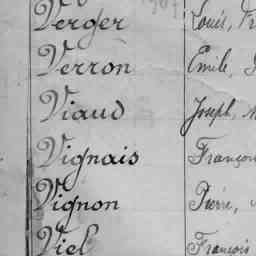 Verger Louis,
Verron Emile,
Viaud Joseph,
Vignais François
Vignon Pierre,
Viel François